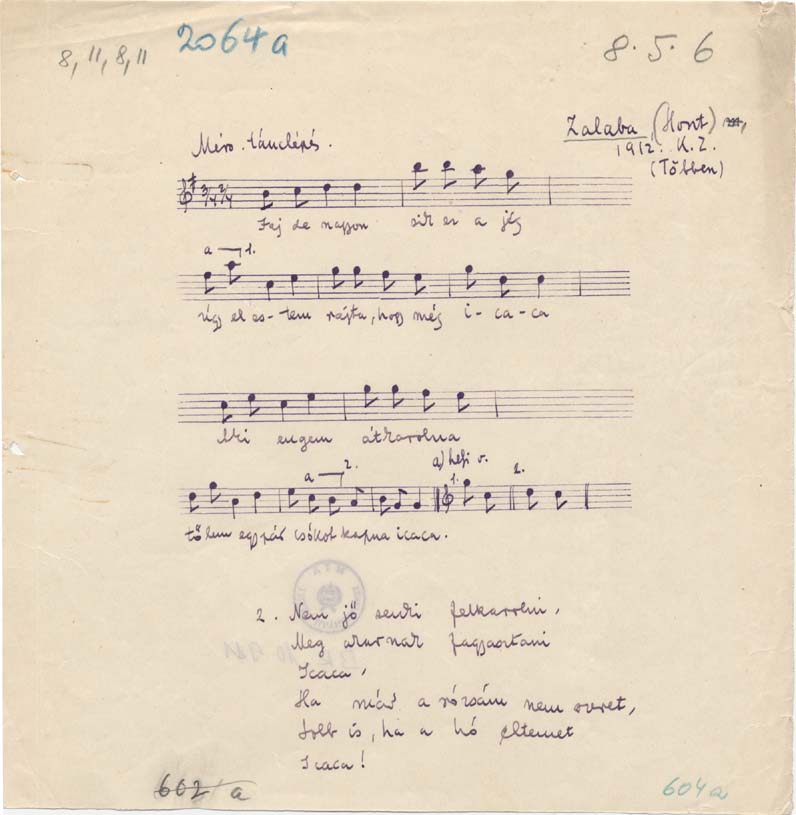 8, 11, 8, 11
2064a
8. 5. 6
Zalaba, (Hont)
Mérs. tánclépés.
1912. K. Z.
(Többen)
3/4 2/4
Haj de nagyon sik er a jég
a 1.
úgy el es-tem rajta, hogy még i-ca-ca
Aki engem átkarolna
a 2.
a) helyi v.
1. 2.
tőlem egy pár csókot kapna icaca.
2. Nem jő senki felkarolni,
Meg akarnak fagyasztani
Icaca,
Ha már a rózsám nem szeret,
Jobb is, ha a hó eltemet
Icaca!
602/a
604a